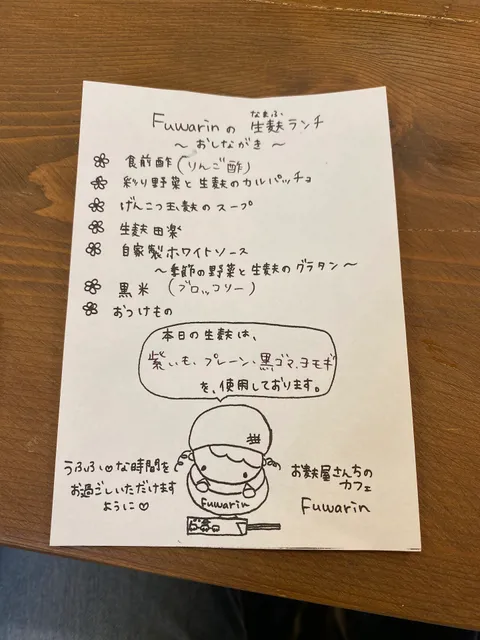 Fuwarinの 生麩ランチ
なまふ
～おしながき～
食前酢(りんご酢)
彩り野菜と生麩のカルパッチョ
げんこつ玉麩のスープ
生麩田楽
自家製ホワイトソース
～季節の野菜と生麩のグラタン～
黒米 (ブロッコリー)
おつけもの
本日の生麩は、
紫いも、プレーン、黒ゴマ、ヨモギ
を、使用しております。
うふふ♡な時間を
お過ごしいただけます
ように♡
Fuwarin
お麩屋さんちの
カフェ
Fuwarin